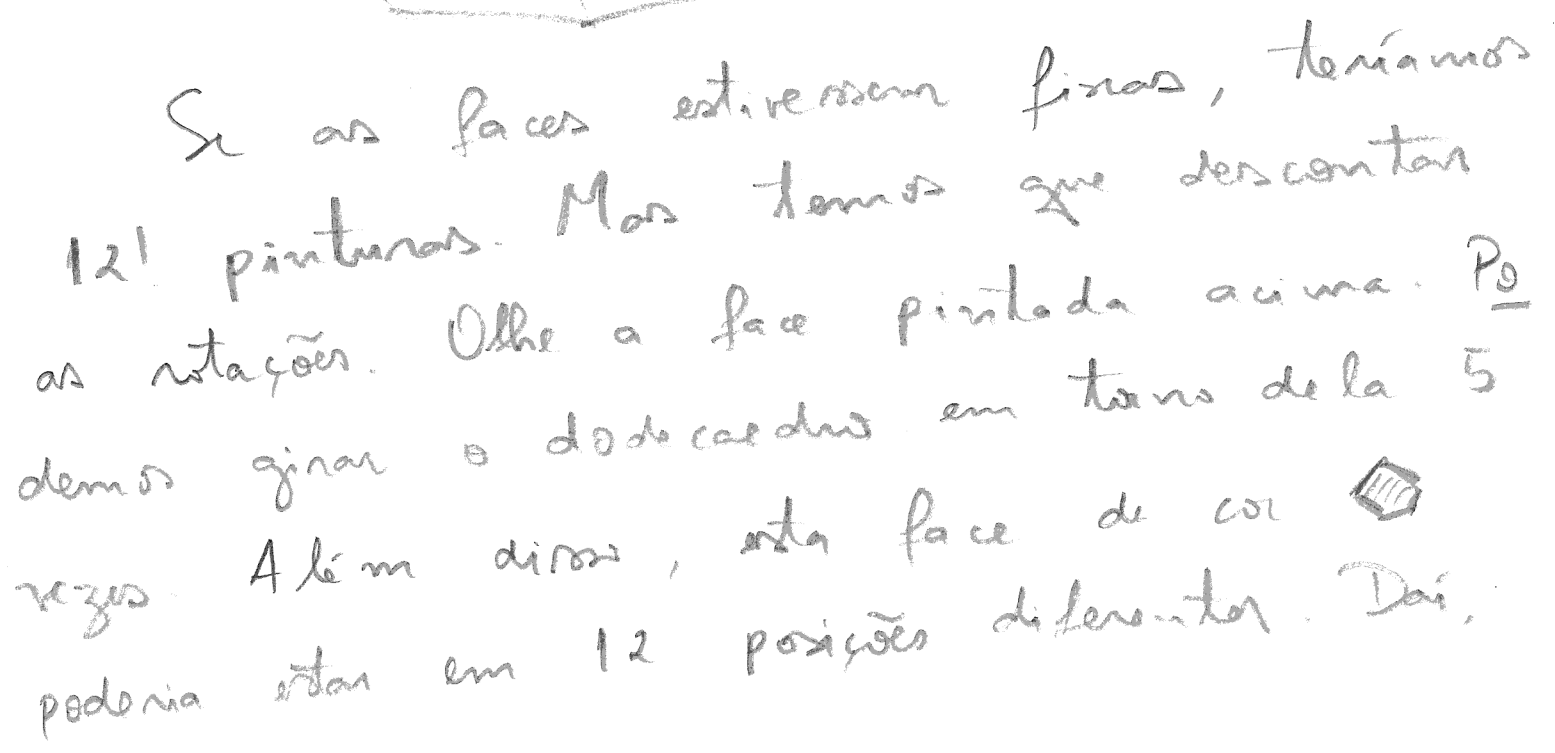 Se as faces estivessem fixas, teríamos
12! pinturas. Mas temos que descontar
as rotações. Olhe a face pintada acima. Po
demos girar o dodecaedro em torno dela 5
vezes. Além disso, esta face de cor
poderia estar em 12 posições diferentes. Daí,